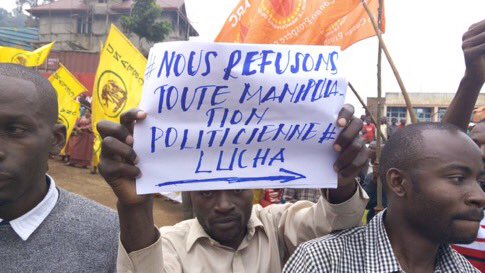 #NOUS REFUSONS
TOUTE MANIPULA
TION
POLITICIENNE#
LUCHA